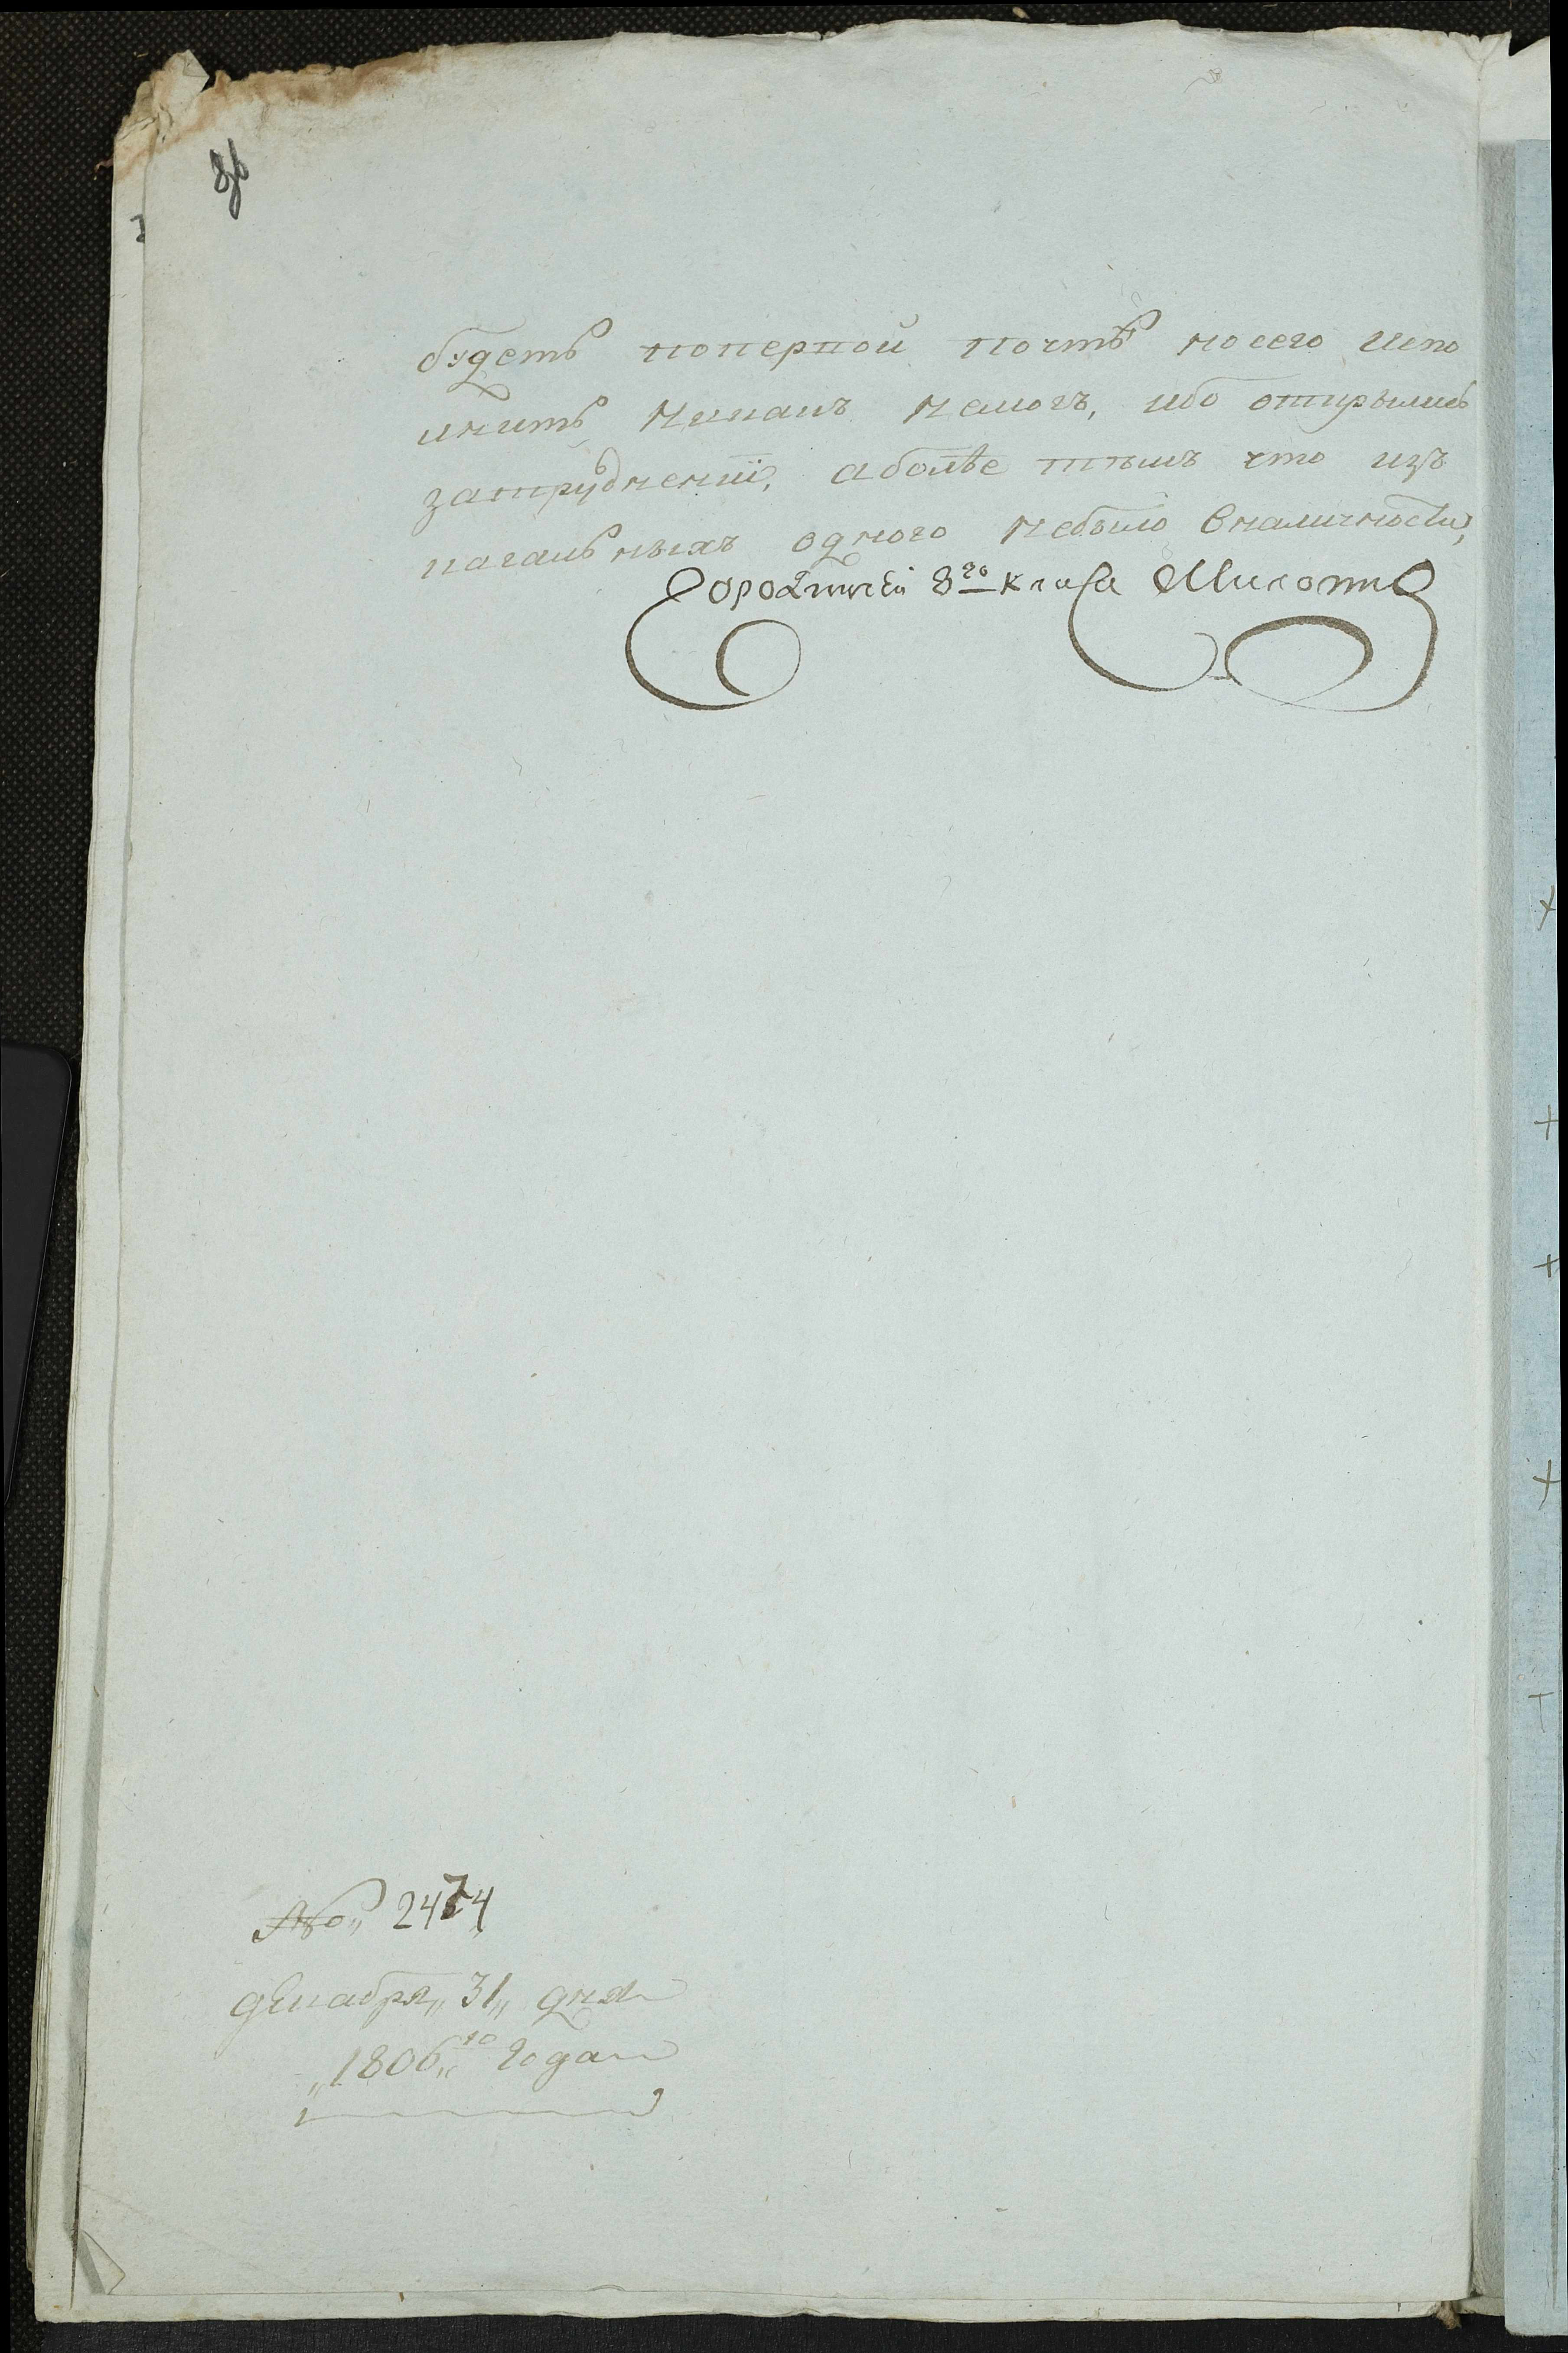 будетъ поперпой почтѣ но сего испо
лнить никакъ немогъ, ибо открылись
затрудненіи, а болѣе тѣмъ что изъ
начальныхъ одного небыло вналичности,
Городничей 8го класа
№о„ 2474
декабря„ 31„ дня
„1806„го года